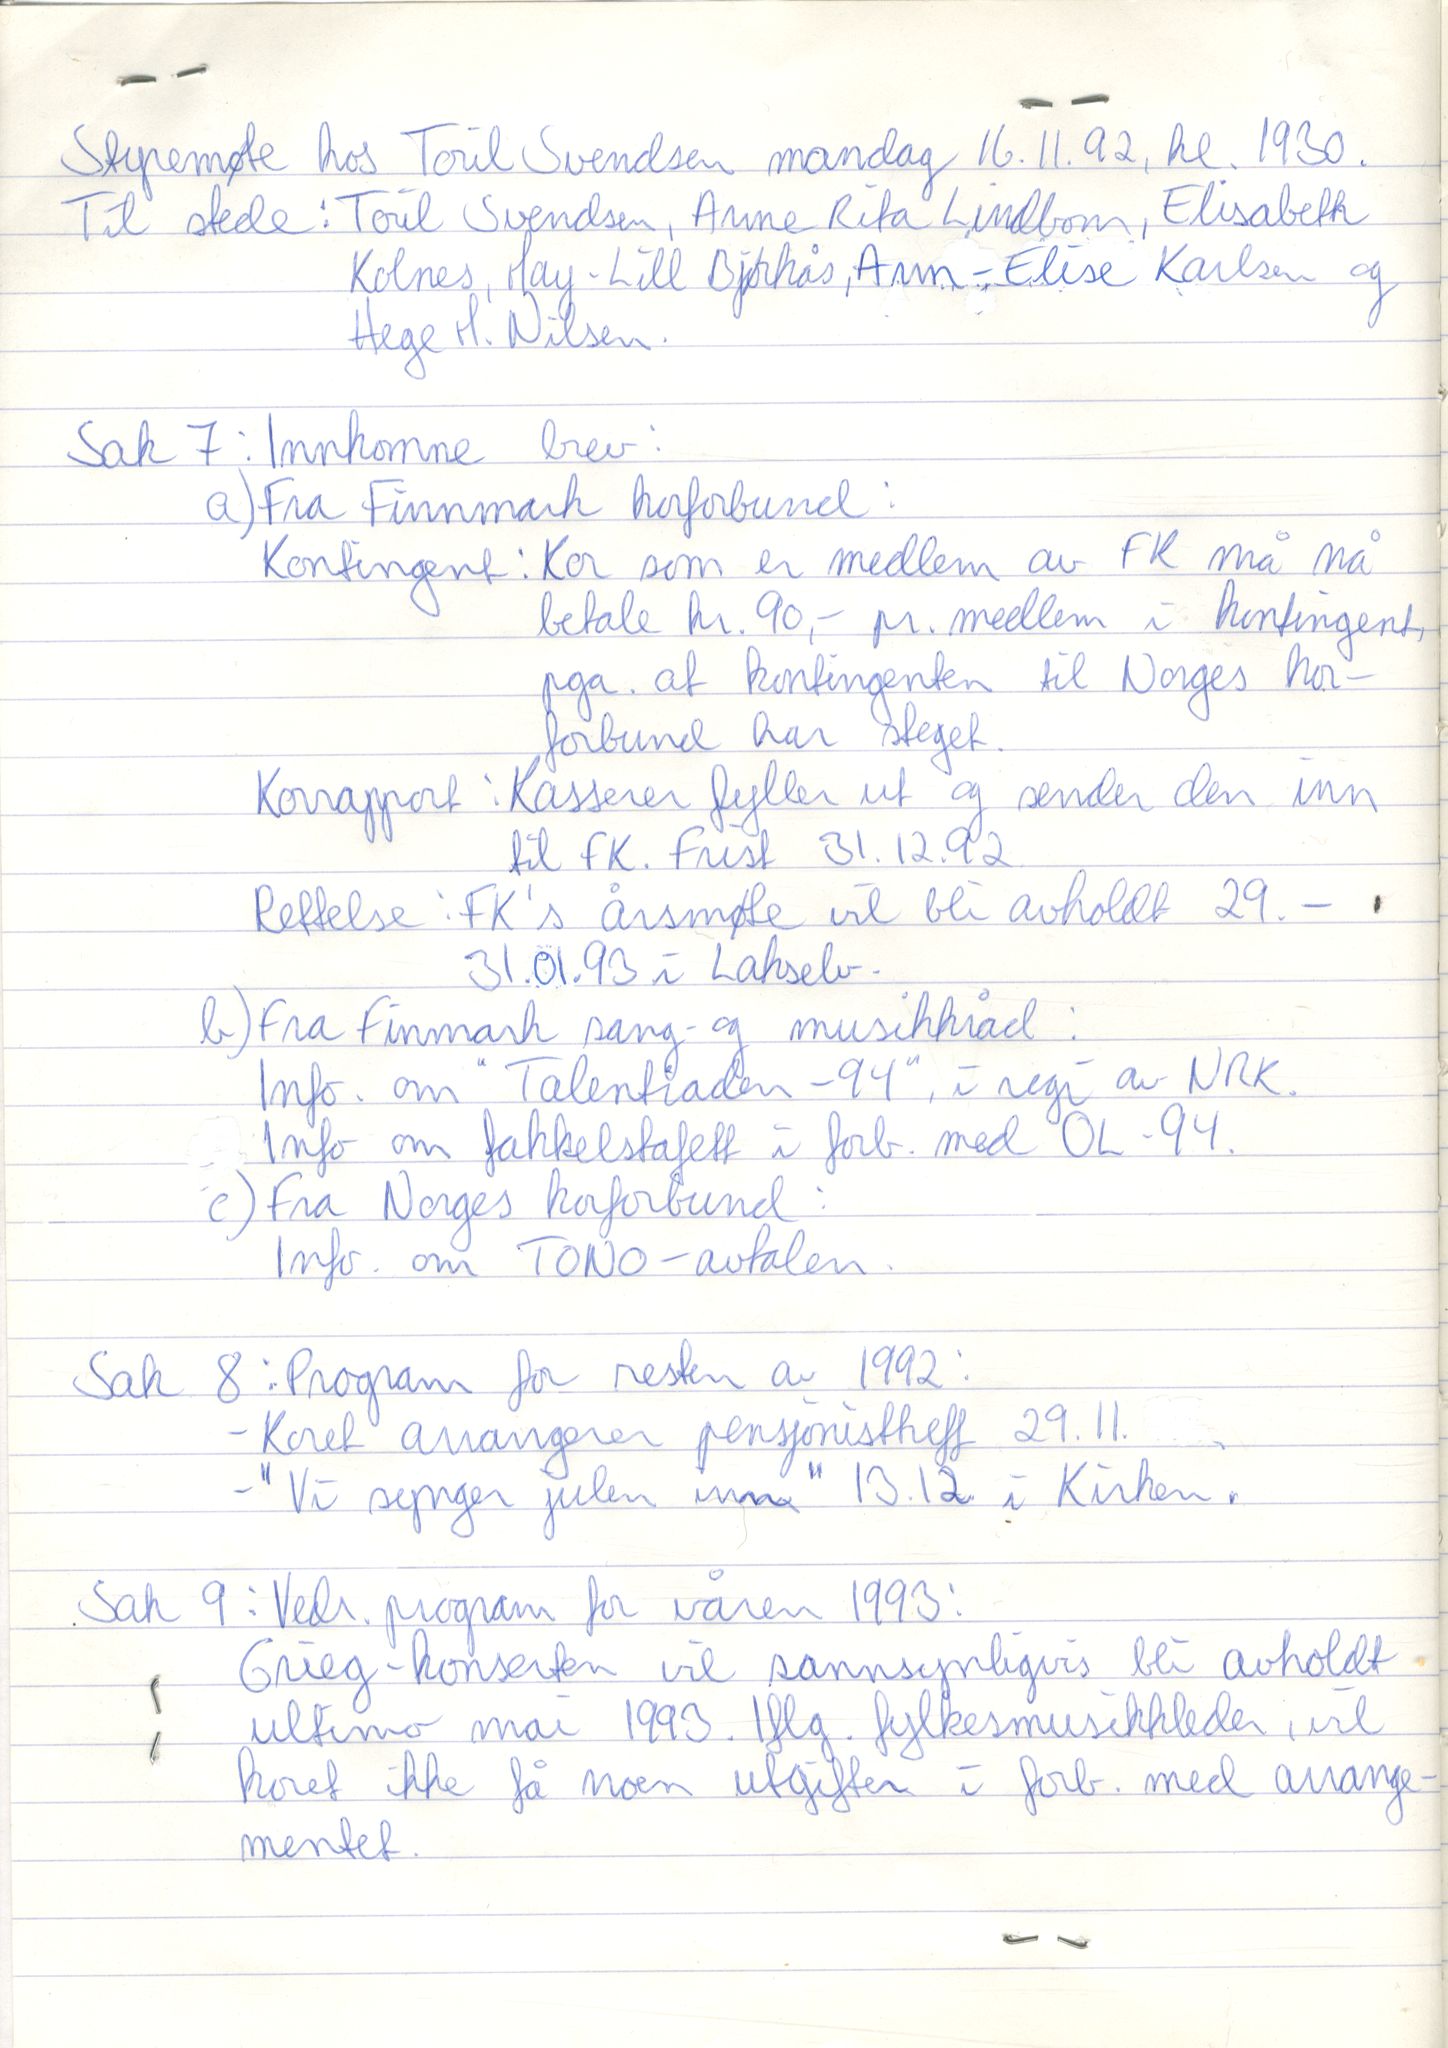 Styremøte hos Toril Svendsen mandag 16.11.92, kl. 1930.
Til stede: Toril Svendsen, Anne Rita Lindbom, Elisabeth
Kolnes, May-Lill Bjørkås, Ann-Elise Karlsen og
Hege H. Nilsen.
Sak 7: Innkomne brev:
a) Fra Finnmark korforbund:
Kontingent: Kor som er medlem av FK må nå
betale kr. 90,- pr. medlem i kontingent,
pga. at kontingenten til Norges kor-
forbund har steget.
Korrapport: Kasserer fyller ut og sender den inn
til FK. Frist 31.12.92
Rettelse: FK's årsmøte vil bli avholdt 29.-
31.01.93 i Lakselv.
b) Fra Finmark sang- og musikkråd:
Info. om "Talentiaden -94", i regi av NRK.
Info om fakkelstafett i forb. med OL -94.
c) Fra Norges korforbund:
Info. om TONO-avtalen.
Sak 8: Program for resten av 1992:
- Koret arrangerer pensjonisttreff 29.11.
- "Vi synger julen inn" 13.12 i Kirken.
Sak 9: Vedr. program for våren 1993:
Grieg-konserten vil sannsynligvis bli avholdt
ultimo mai 1993. Iflg. fylkesmusikkleder, vil
koret ikke få noen utgifter i forb. med arrange-
mentet.